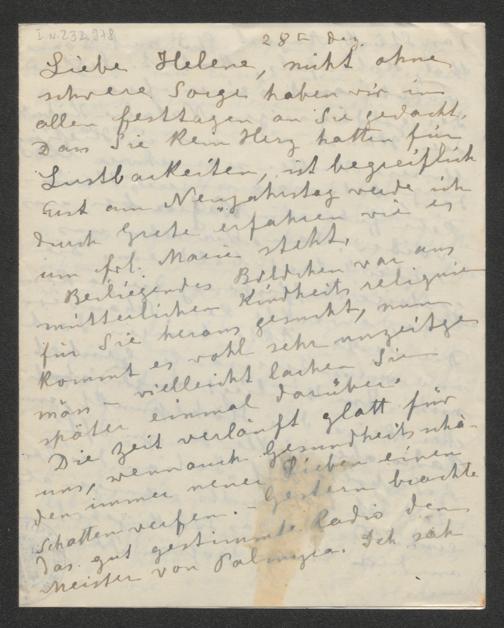 I.N.232.978
28t Dez.
Liebe Helene, nicht ohne
schwere Sorge haben wir in
allen Festtagen an Sie gedacht.
Dass Sie kein Herz hatten für
Lustbarkeiten, ist begreiflich
Erst am Neujahrstag werde ich
durch Grete erfahren wie es
um frl. Marie steht.
Beiliegendes Bildchen war aus
mütterlichen Kindheits reliquien
für Sie heraus gesucht, nun
kommt es wohl sehr unzeitge
män – vielleicht lachen Sie
später einmal darüber.
Die Zeit verläuft glatt für
uns, wenn auch Gesundheitsschä-
den immer neuer Lieben einen
Schatten werfen. – Gestern brachte
das gut gestimmte Radio den
Meister von Palmyra. Ich sah